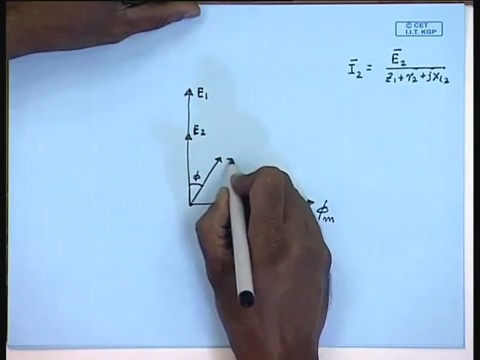 © CET
I.I.T. KGP
Ī₂ = Ē₂ / z₁ + r₂ + jx₁₂
E₁
E₂
φ
φₘ